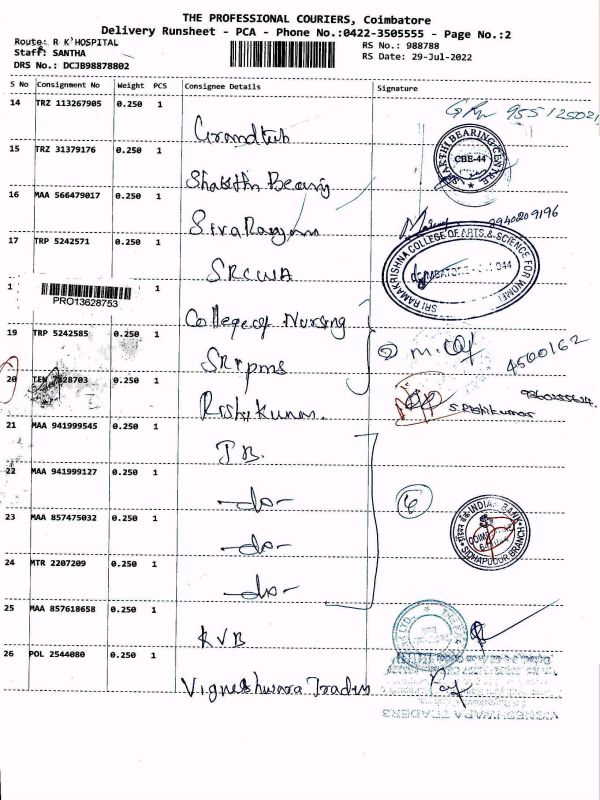 THE PROFESSIONAL COURIERS, Coimbatore
Delivery Runsheet - PCA - Phone No.:0422-3505555 - Page No.:2
Route: R K'HOSPITAL
Staff: SANTHA
DRS No.: DCJB98878802
RS No.: 988788
RS Date: 29-Jul-2022
S No Consignment No Weight PCS Consignee Details Signature
14 TRZ 113267905 0.250 1
15 TRZ 31379176 0.250 1
SHAKTHI BEARING CENTRE
CBE-44
Shakthi Bearing
16 MAA 566479017 0.250 1
9940209196
17 TRP 5242571 0.250 1
SRI RAMAKRISHNA COLLEGE OF ARTS & SCIENCE FOR WOMEN
SRCWA
1
PRO13628753
College of Nursing
19 TRP 5242585 0.250 1
4500162
20 TEN 7828703 0.250 1
Rishikumar.
S. Rishikumar
21 MAA 941999545 0.250 1
IB.
22 MAA 941999127 0.250 1
-do-
23 MAA 857475032 0.250 1
-do-
INDIAN BANK
SIDHAPUDUR BRANCH
24 MTR 2207209 0.250 1
-do-
25 MAA 857618658 0.250 1
KVB
26 POL 2544080 0.250 1
Vigneshwara Traders
VIGNESHWARA TRADERS